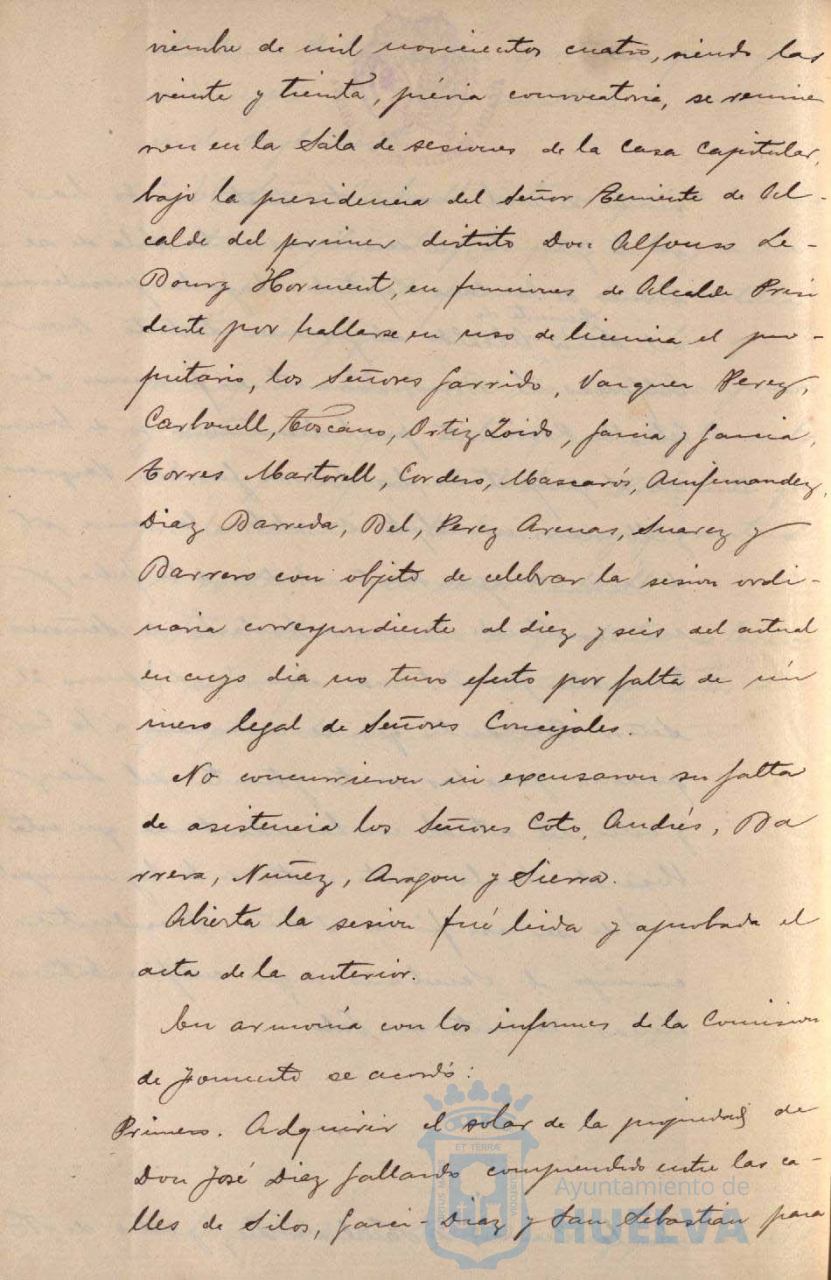 viembre de mil novecientos cuatro, siendo las
veinte y treinta, prévia convocatoria, se reunie
ron en la Sala de sesiones de la Casa Capitular,
bajo la presidencia del Señor Teniente de Al-
calde del primer distrito Don Alfonso Le-
Bourg Horment, en funciones de Alcalde Presi
dente por hallarse en uso de licencia el pro-
pietario, los Señores Garrido, Vazquez Perez,
Carbonell, Toscano, Ortiz Zoido, Garcia y Garcia,
Torres Martorell, Cordero, Mascarós,
Diaz Barreda, Bel, Perez Arenas, Suarez y
Barrero con objeto de celebrar la sesion ordi-
naria correspondiente al diez y seis del actual
en cuyo dia no tuvo efecto por falta de nú
mero legal de Señores Concejales.
No concurrieron ni excusaron su falta
de asistencia los Señores Coto, Andrés, Ba
rrera, Nuñez, Aragon y Sierra.
Abierta la sesion fué leida y aprobada el
acta de la anterior.
En armonía con los informes de la Comision
de Fomento se acordó:
Primero. Adquirir el solar de la propiedad de
Don José Diaz Gallardo comprendido entre las ca-
lles de Silos, Garci-Diaz y San Sebastián para
Ayuntamiento de
HUELVA